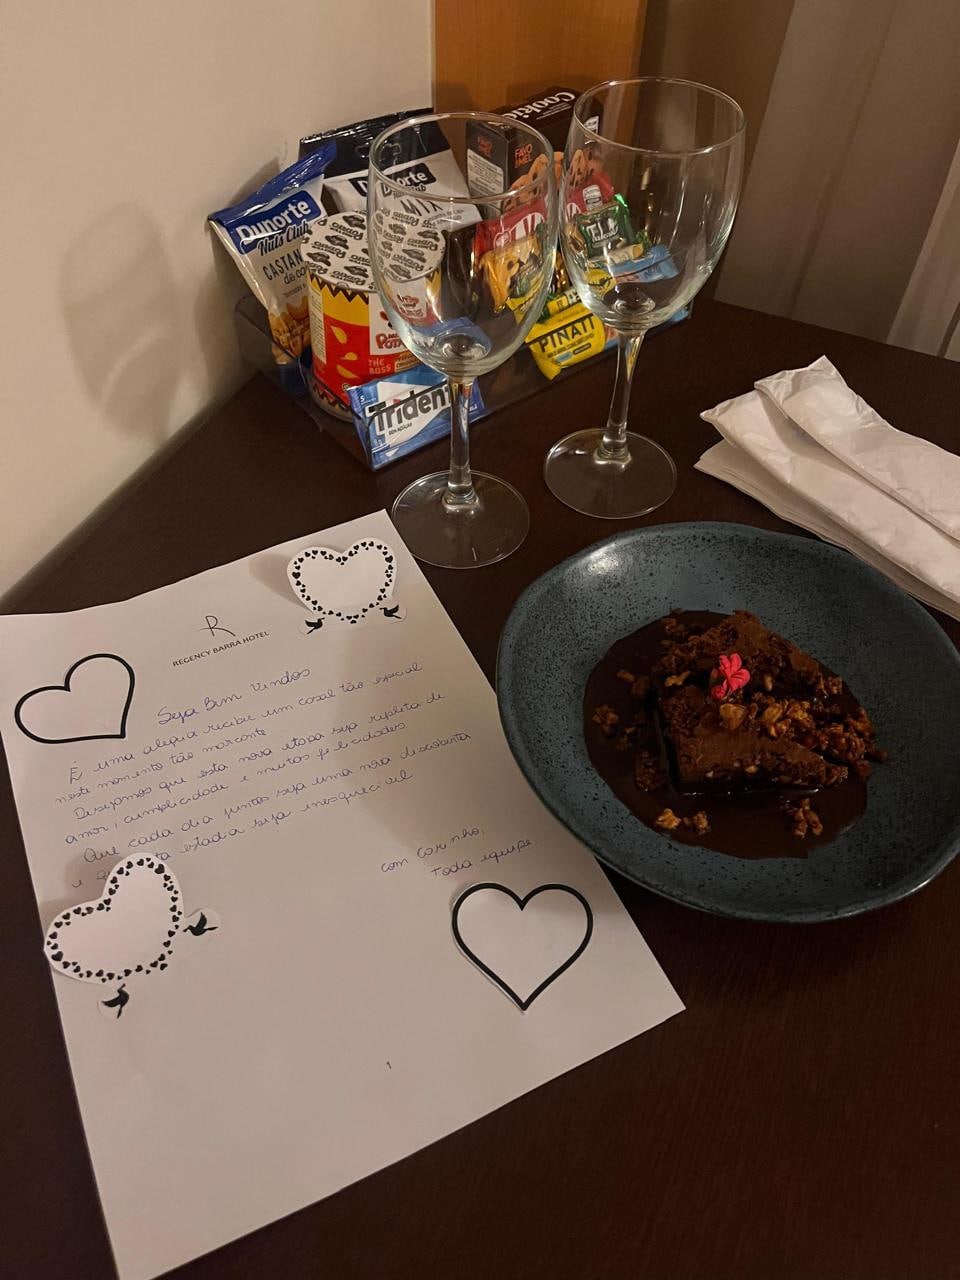 Cookies
FAVO
DE MEL
Dunorte
Nuts Club
CASTANHA
de caju
Dunorte
MIX
THE
BOSS
Trident
SEM AÇÚCAR
PINATI
R
REGENCY BARRA HOTEL
Seja Bem Vindos
É uma alegria receber um casal tão especial
neste momento tão marcante
Desejamos que esta nova etapa seja repleta de
amor, cumplicidade e muitas felicidades
Que cada dia juntos seja uma nova descoberta
e estada seja inesquecível
com carinho,
Toda equipe.
1